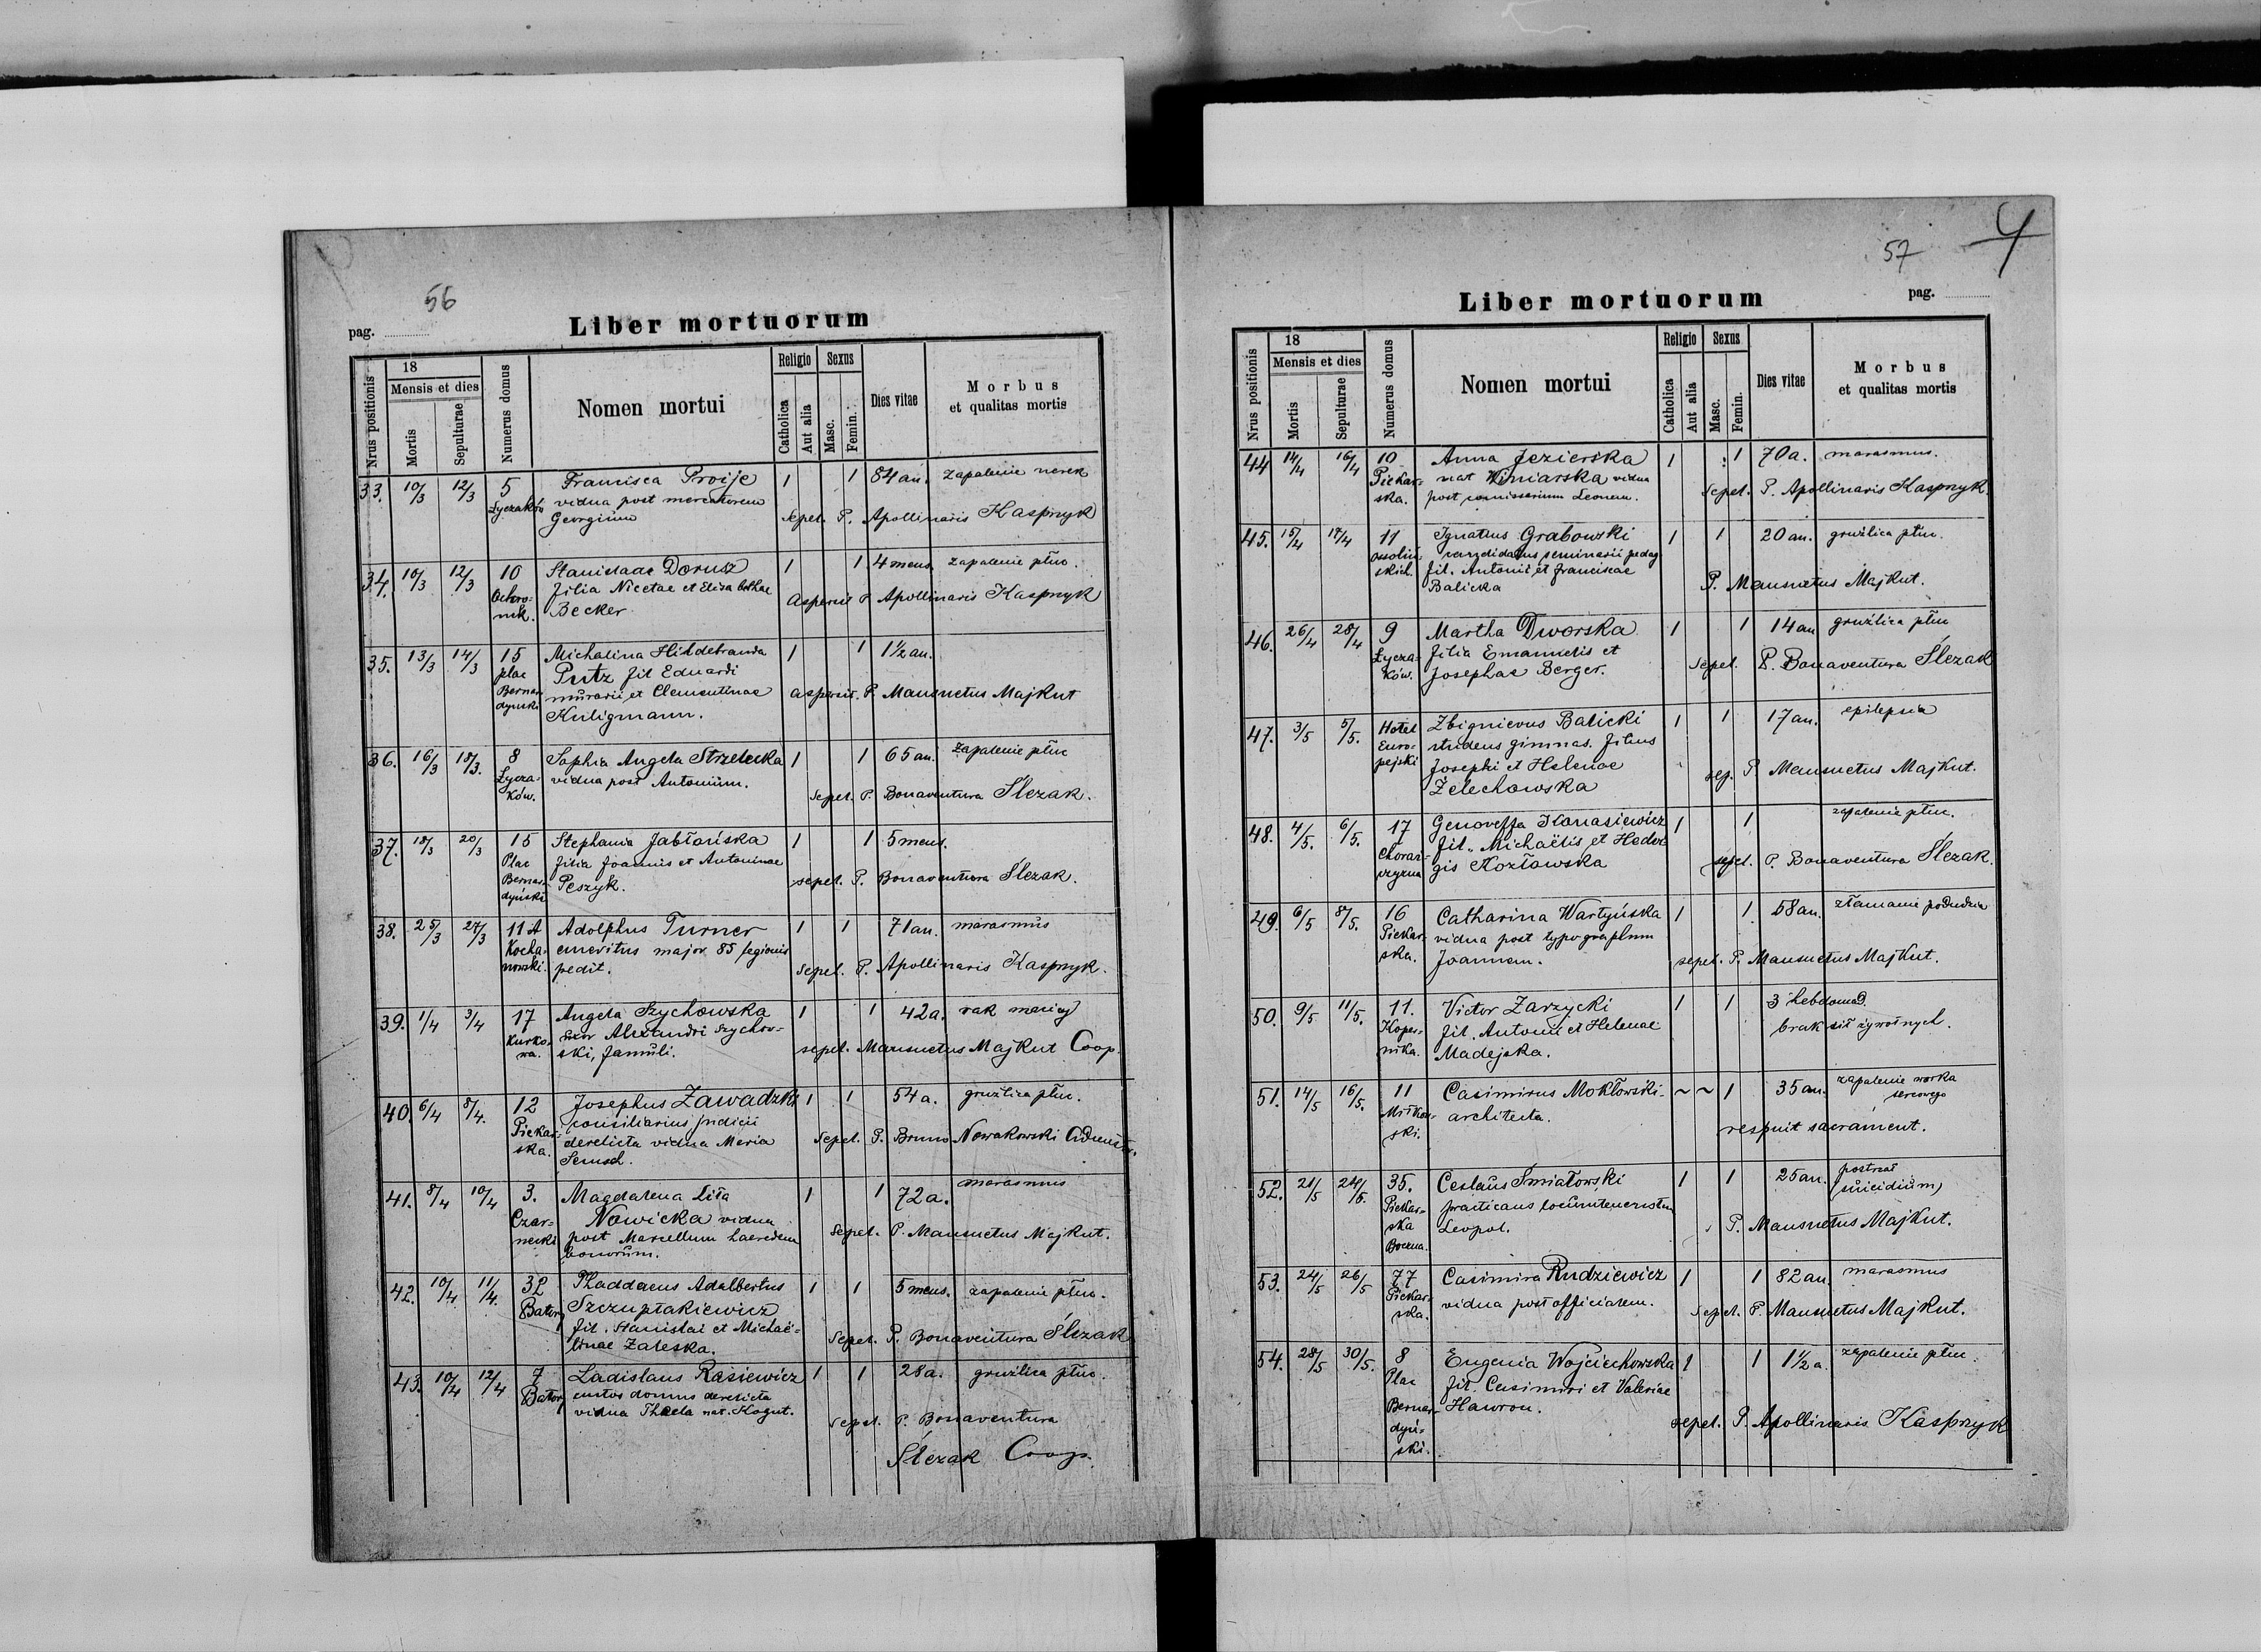 56
pag.
Liber mortuorum
Nrus positionis
18
Mensis et dies
Mortis
Sepulturae
Numerus domus
Nomen mortui
Religio
Catholica
Aut alia
Sexus
Masc.
Femin.
Dies vitae
Morbus
et qualitas mortis
33. 10/3 12/3 5 Francisca Proije 1 1 84 an. zapalenie nerek
Łyczaków vidua post mercatorem
Georgium sepel. P. Apollinaris Kasprzyk
34. 10/3 12/3 10 Stanislaae Dorusz 1 1 4 mens. zapalenie płuc.
Ochro- filia Nicetae et Elisabethae aspersit P Apollinaris Kasprzyk
nek. Becker
35. 13/3 14/3 15 Michalina Hildebranda 1 1 1½ an.
plac Putz fil Eduardi
Bernar murarii et Clementinae aspersit. P. Mansuetus Majkut
dyński Kuligmann.
36. 16/3 18/3. 8 Sophia Angela Strzelecka 1 1 65 an. zapalenie płuc
Łycza- vidua post Antonium.
ków. sepel. P. Bonaventura Ślezak.
37. 18/3 20/3 15 Stephania Jabłańska 1 1 5 mens.
Plac filia Joannis et Antoninae
Bernar- Peszyk. sepel. P. Bonaventura Ślezak.
dyński
38. 25/3 27/3 11 A Adolphus Turner 1 1 71 an. marasmus
Kocha- emeritus major 85 legionis
nowski. pedit. sepel. P. Apollinaris Kasprzyk.
39. 1/4 3/4 17 Angela Szychowska 1 1 42 a. rak macicy
Kurko- uxor Alexandri Szychow-
wa. ski, famuli. sepel. Mansuetus Majkut Coop.
40. 6/4 8/4. 12 Josephus Zawadzki 1 1 54 a. gruźlica płuc.
Piekar- consiliarius judicii
ska. derelicta vidua Maria sepel. P. Bruno Nowakowski
41. 8/4 10/4 3. Magdalena Liła 1 1 72 a. marasmus
Czar- Nowicka vidua
necki post Marcellum haeredem sepel. P. Mansuetus Majkut.
bonorum.
42. 10/4 11/4. 32 Thaddaeus Adalbertus 1 1 5 mens. zapalenie płuc.
Batory Szczuptakiewicz
fil. Stanislai et Michaë- sepel. P. Bonaventura Ślezak
linae Zaleska.
43. 10/4 12/4 7 Ladislaus Rasiewicz 1 1 28 a. gruźlica płuc.
Batory custos domus derelicta
vidua Thecla nat. Kogut. sepel. P. Bonaventura
Ślezak Coop.
57
4
Liber mortuorum
pag.
Nrus positionis
18
Mensis et dies
Mortis
Sepulturae
Numerus domus
Nomen mortui
Religio
Catholica
Aut alia
Sexus
Masc.
Femin.
Dies vitae
Morbus
et qualitas mortis
44 14/4 16/4 10 Anna Jezierska 1 1 70 a. marasmus.
Piekar- nat Winiarska vidua
ska. post comissarium Leonem. sepel. P. Apollinaris Kasprzyk.
45. 15/4 17/4 11 Ignatius Grabowski 1 1 20 an. gruźlica płuc.
Ossoliń candidatus seminarii pedag
skich. fil. Antonii et Franciscae
Balicka P. Mansuetus Majkut.
46. 26/4 28/4 9 Martha Dworska 1 1 14 an gruźlica płuc
Łycza- filia Emanuelis et
ków. Josephae Berger. sepel. P. Bonaventura Ślezak
47. 3/5 5/5. Hotel Zbignievus Balicki 1 1 17 an. epilepsia
Euro- studens gimnas. filius
pejski Josephi et Helenae sep. P Mansuetus Majkut.
Żelechowska
48. 4/5. 6/5. 17 Genoveffa Ilanasiewicz 1 1 zapalenie płuc.
Chorąż- fil. Michaëlis et Hedvi
czyzna gis Kozłowska sepel. P. Bonaventura Ślezak.
49. 6/5 8/5. 16 Catharina Wartyńska 1 1 58 an. złamanie podudzia
Piekar- vidua post typographum
ska. Joannem. sepel. P. Mansuetus Majkut.
50. 9/5 11/5. 11. Victor Zarzycki 1 1 3 hebdomad.
Koper- fil. Antonii et Helenae brak sił żywotnych.
nika. Madejska.
51. 14/5 16/5. 11 Casimirus Mokłowski. ~ ~ 1 35 an. zapalenie worka
architecta. sercowego
ski. respuit sacrament.
52. 21/5 24/5. 35. Ceslaus Śmiałowski 1 1 25 an. postrzał
Piekar- practicans locumtenentiae (suicidium)
ska Leopol. P. Mansuetus Majkut.
Boczna.
53. 24/5 26/5 77 Casimira Rudziewicz 1 1 82 an. marasmus
Piekar- vidua post officialem.
ska. Sepel. P. Mansuetus Majkut.
54. 28/5 30/5. 8 Eugenia Wojciechowska 1 1 1½ a. zapalenie płuc.
Plac fil. Casimiri et Valeriae
Bernar- Hawron. sepel. P. Apollinaris Kasprzyk
dyń-
ski.